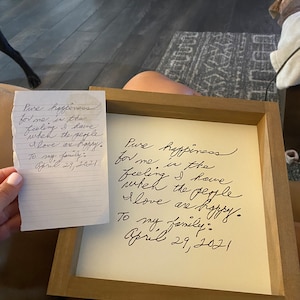 Pure happiness
for me, is the
feeling I have
when the people
I love are happy.
To my family:
April 29, 2021
Pure happiness
for me, is the
feeling I have
when the people
I love are happy.
To my family:
April 29, 2021